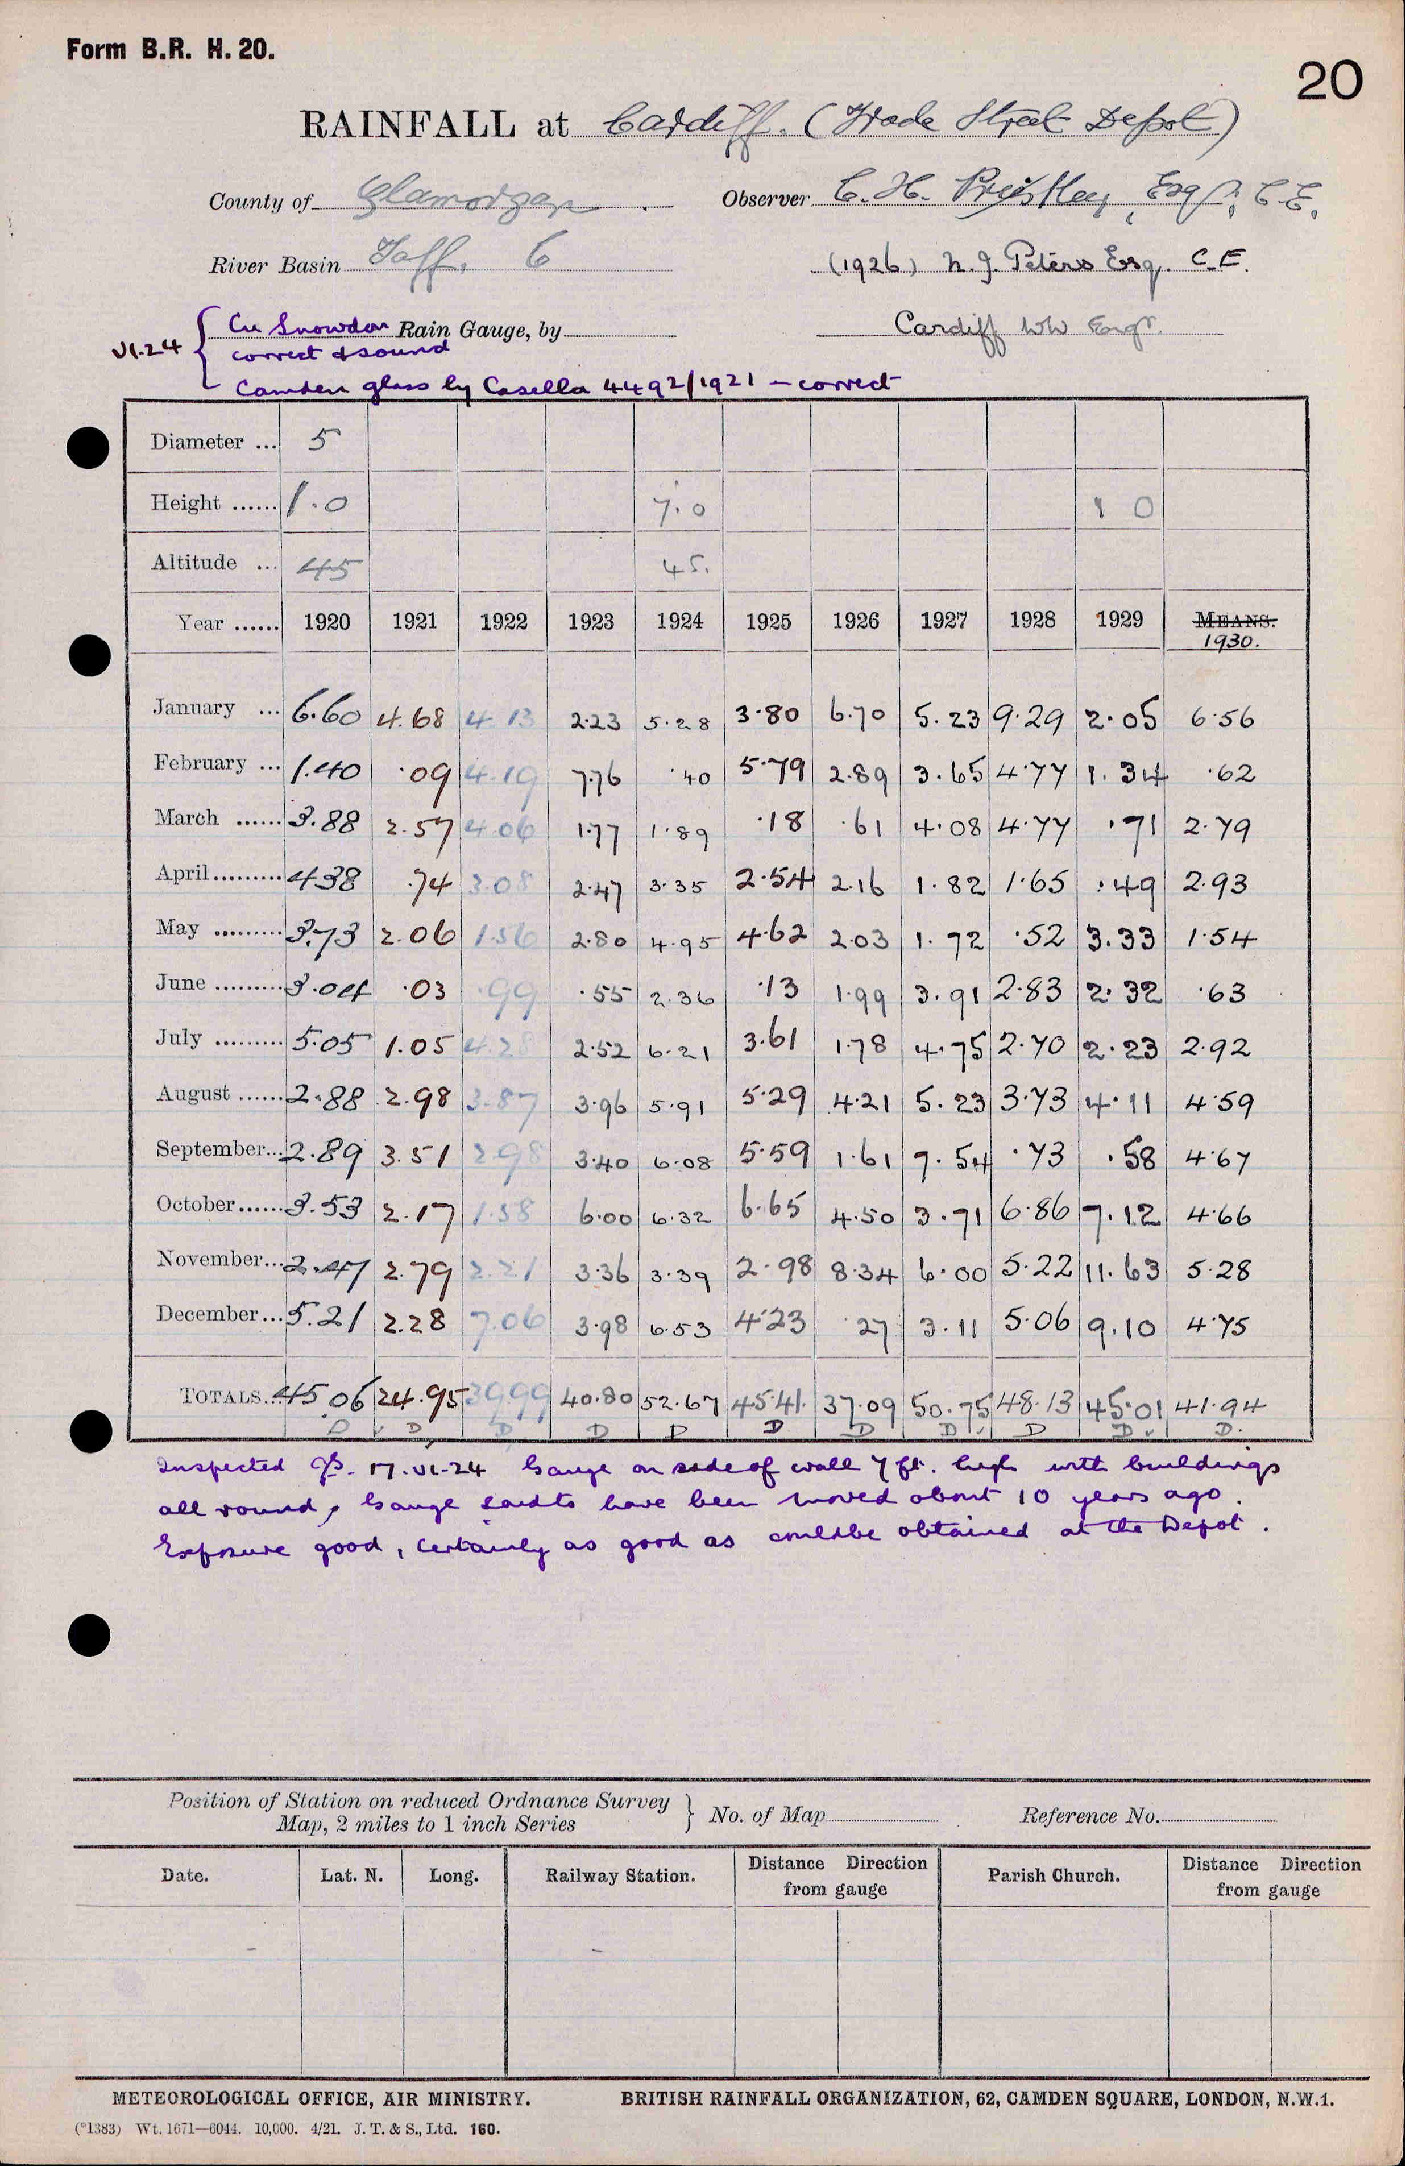 Form B.R. H. 20.
20
RAINFALL at Cardiff. (Trade Street Depot)
County of Glamorgan. Observer C. H. Priestley, Esqr., C.E.
River Basin Taff. 6 (1926) N. J. Peters Esq. C.E.
VI.24 { Cu Snowdon Rain Gauge, by Cardiff WW Engr.
correct & sound
Camden glass by Casella 4492/1921 - correct
Diameter ... 5
Height ...... 1.0 7.0 1 0
Altitude ... 45 45.
Year ...... 1920 1921 1922 1923 1924 1925 1926 1927 1928 1929 MEANS.
1930.
January ... 6.60 4.68 4.13 2.23 5.28 3.80 6.70 5.23 9.29 2.05 6.56
February ... 1.40 .09 4.19 7.76 .40 5.79 2.89 3.65 4.77 1.34 .62
March ...... 3.88 2.57 4.06 1.77 1.89 .18 .61 4.08 4.77 .71 2.79
April ......... 4.38 .74 3.08 2.47 3.35 2.54 2.16 1.82 1.65 .49 2.93
May ......... 3.73 2.06 1.56 2.80 4.95 4.62 2.03 1.72 .52 3.33 1.54
June ......... 3.04 .03 .99 .55 2.36 .13 1.99 3.91 2.83 2.32 .63
July ......... 5.05 1.05 4.28 2.52 6.21 3.61 1.78 4.75 2.70 2.23 2.92
August ...... 2.88 2.98 3.87 3.96 5.91 5.29 4.21 5.23 3.73 4.11 4.59
September... 2.89 3.51 2.98 3.40 6.08 5.59 1.61 7.54 .73 .58 4.67
October...... 3.53 2.17 1.58 6.00 6.32 6.65 4.50 3.71 6.86 7.12 4.66
November... 2.47 2.79 2.21 3.36 3.39 2.98 8.34 6.00 5.22 11.63 5.28
December... 5.21 2.28 7.06 3.98 6.53 4.23 .27 3.11 5.06 9.10 4.75
TOTALS... 45.06 24.95 39.99 40.80 52.67 45.41 37.09 50.75 48.13 45.01 41.94
D D D D D D D D D D D.
Inspected 17.VI.24 Gauge on side of wall 7 ft. high with buildings
all round, Gauge said to have been moved about 10 years ago.
Exposure good, certainly as good as could be obtained at the Depot.
Position of Station on reduced Ordnance Survey } No. of Map Reference No.
Map, 2 miles to 1 inch Series
Date. Lat. N. Long. Railway Station. Distance Direction from gauge Parish Church. Distance Direction from gauge
METEOROLOGICAL OFFICE, AIR MINISTRY. BRITISH RAINFALL ORGANIZATION, 62, CAMDEN SQUARE, LONDON, N.W.1.
(*1383) Wt. 1671—6044. 10,000. 4/21. J. T. & S., Ltd. 160.